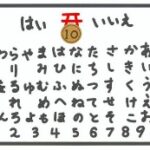 はい 10 いいえ
あいうえお
かきくけこ
さしすせそ
たちつてと
なにぬねの
はひふへほ
まみむめも
やゆよ
らりるれろ
わをん
2 3 4 5 6 7 8 9